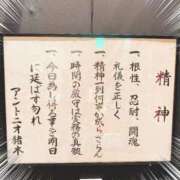 精神
一、根性、忍耐、闘魂
礼儀を正しく
一、精神一到何事か成らざらん
一、時間の厳守は実務の真髄
一、今日為し得る事を明日
に延ばす勿れ
アントニオ猪木